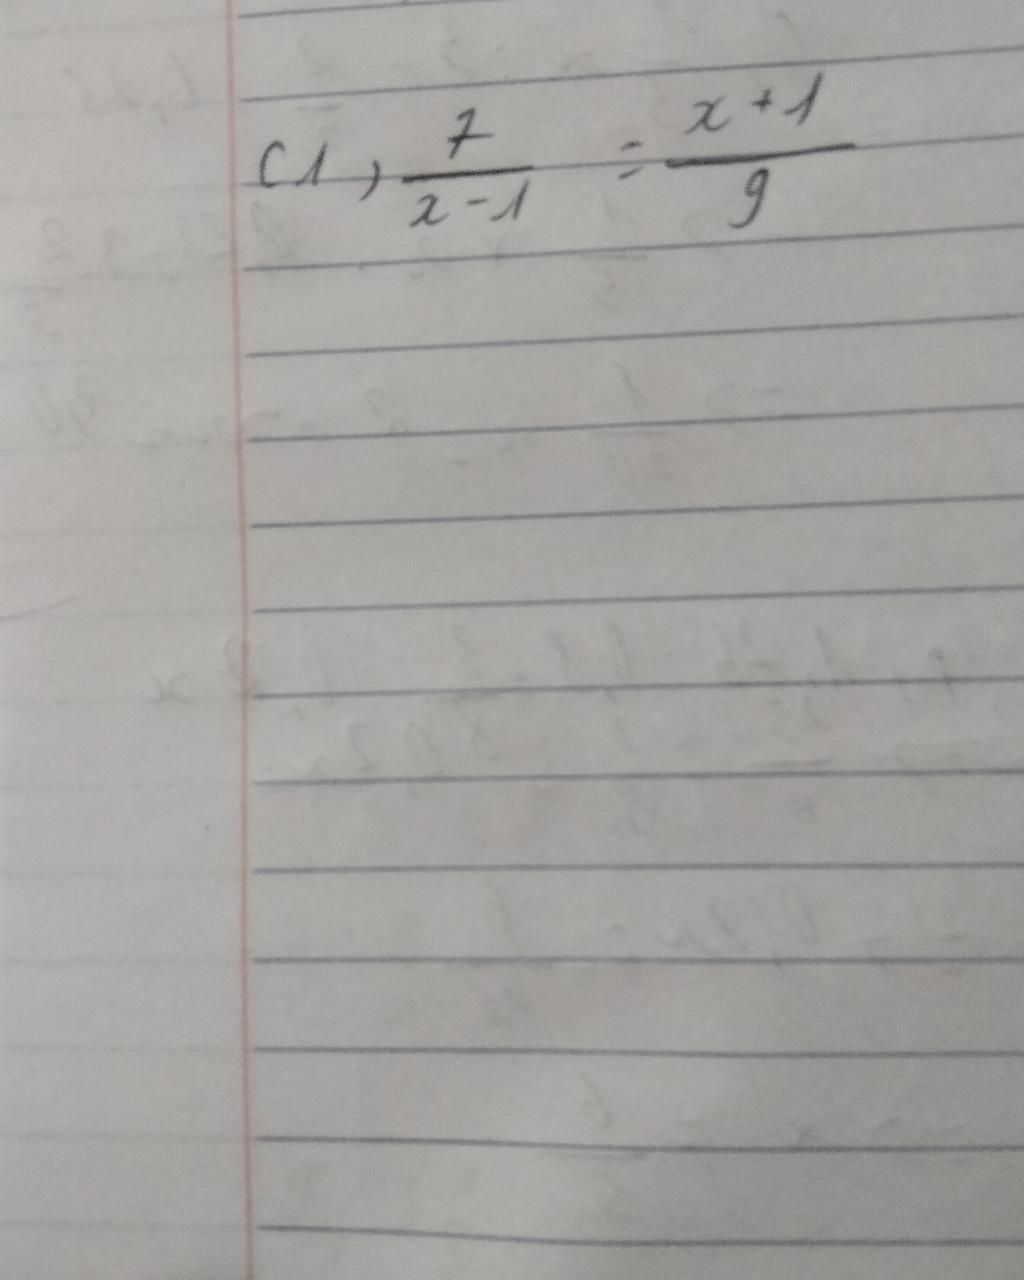 C1, 7/(x-1) = (x+1)/9